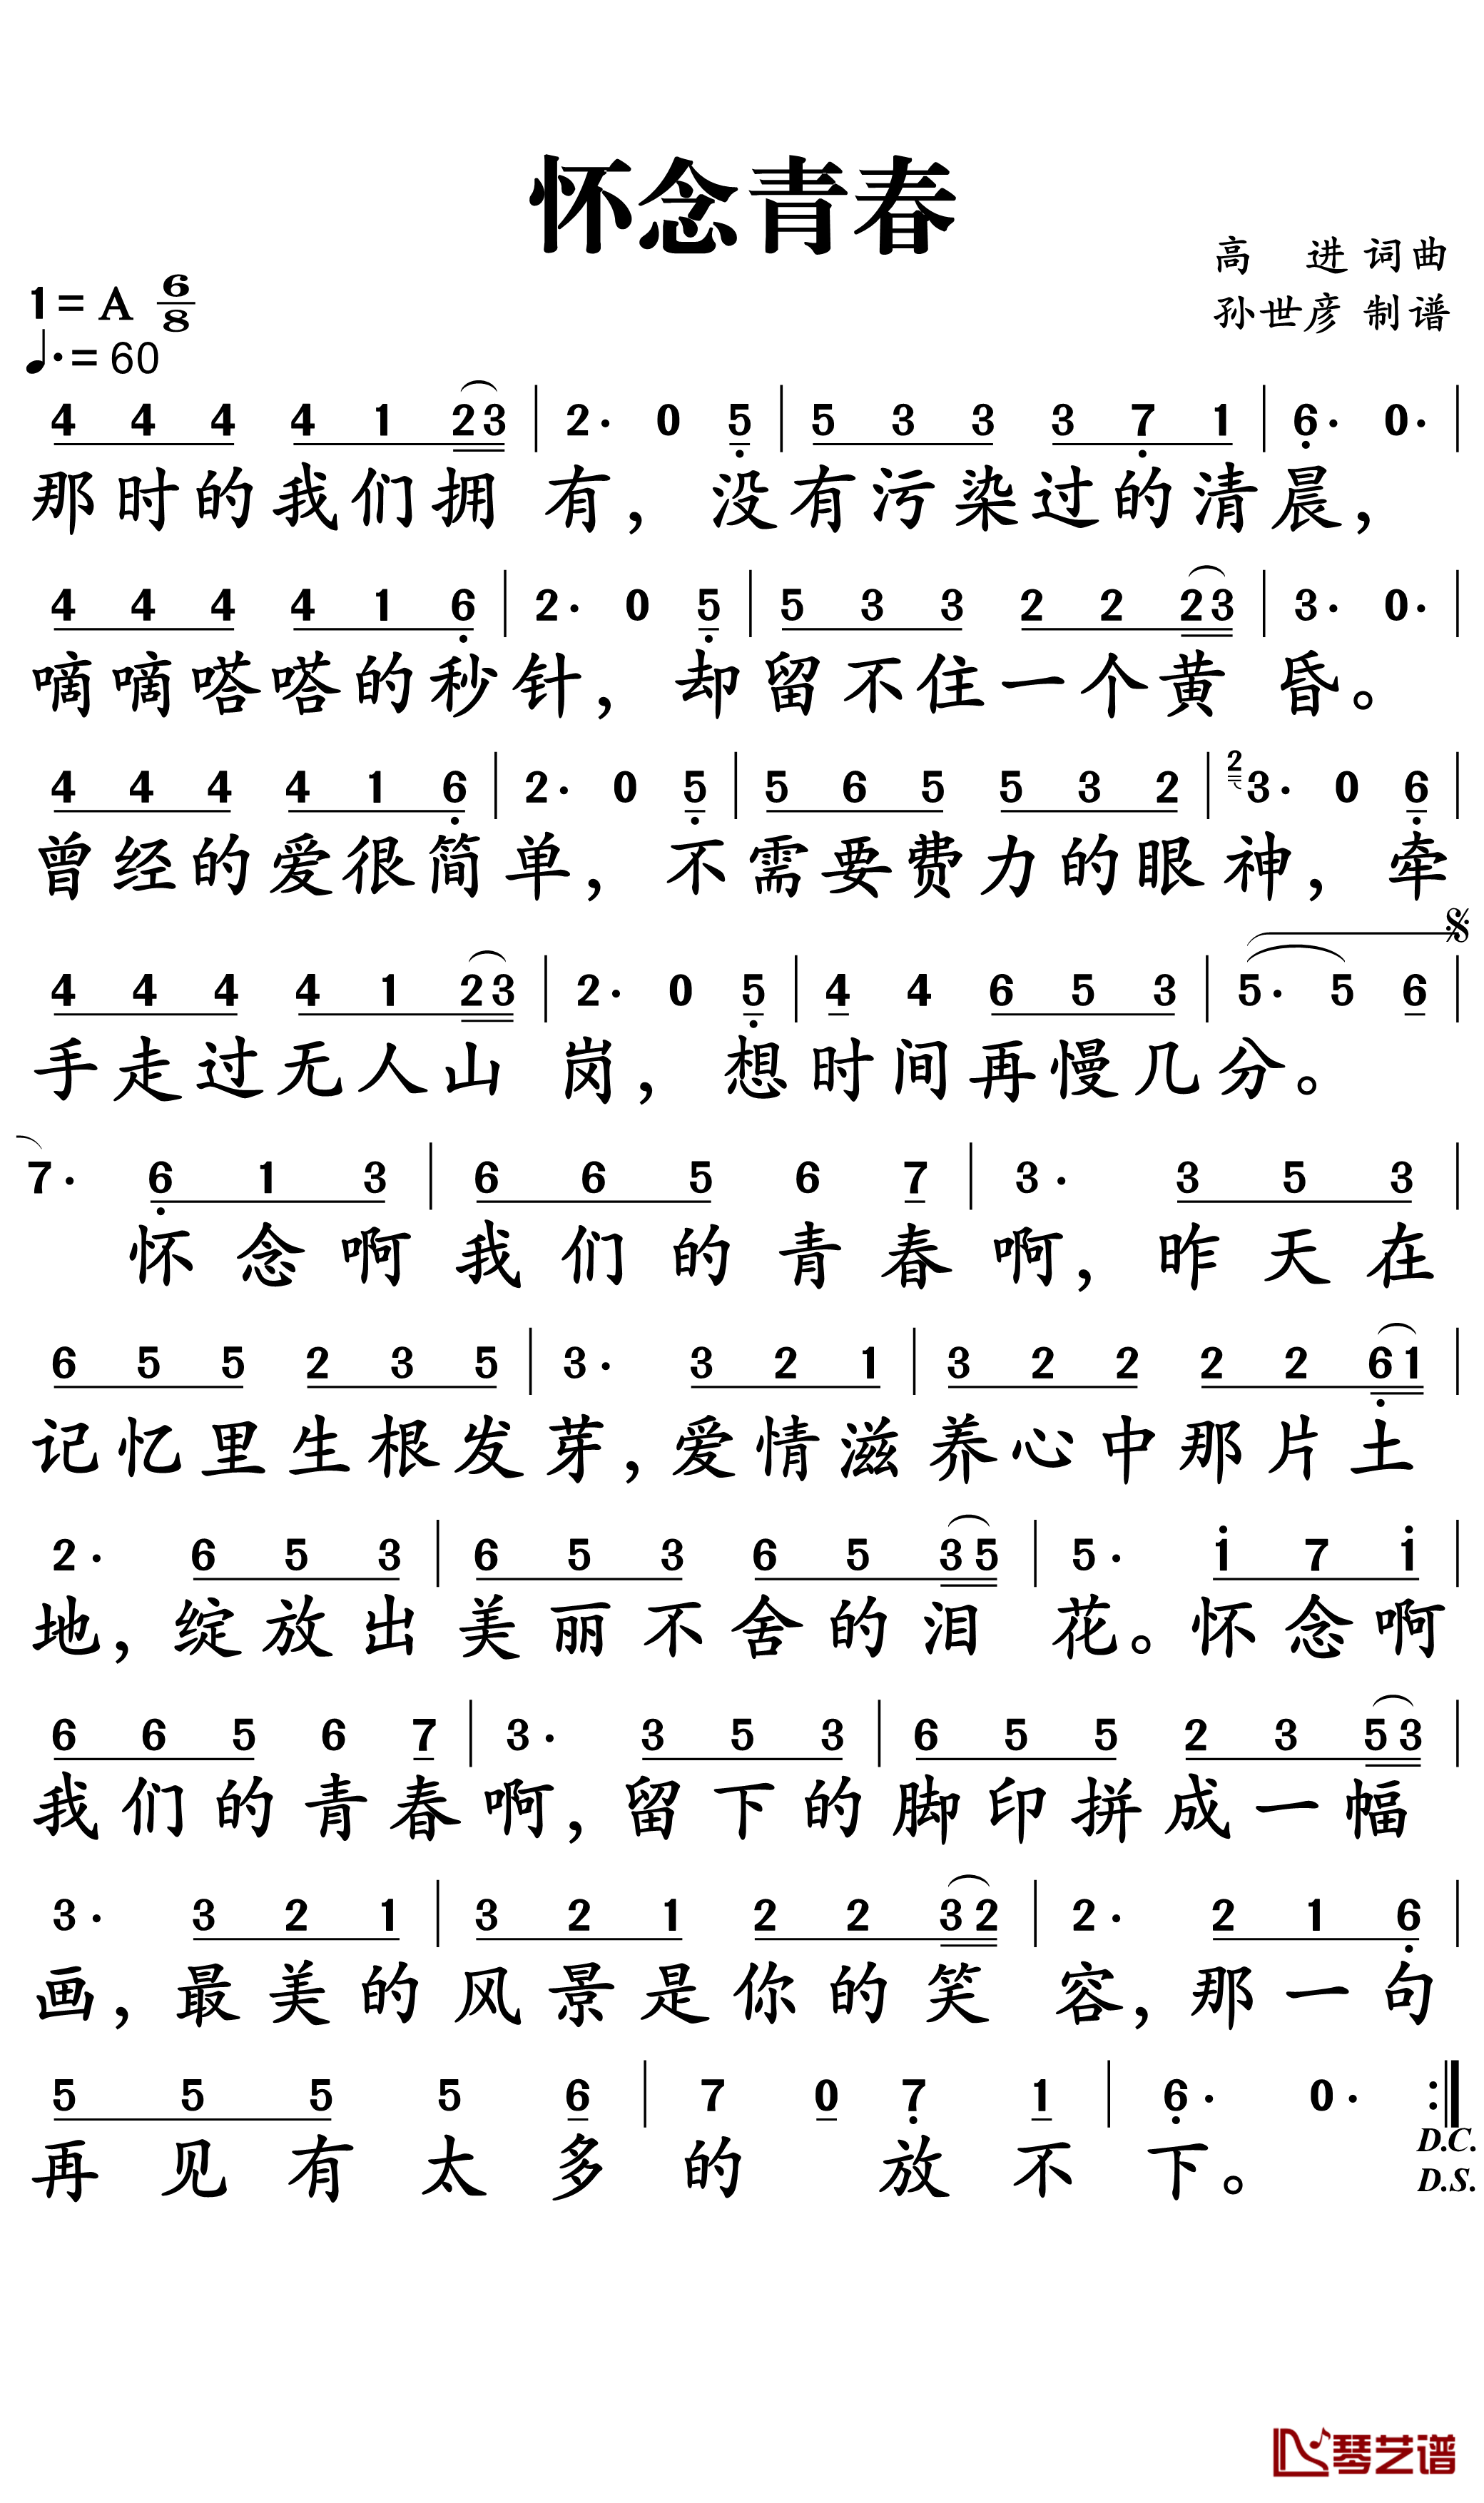 怀念青春
高 进 词曲
1= A 6/8
孙世彦 制谱
♩.= 60
4 4 4 4 1 23 | 2· 0 5 | 5 3 3 3 7 1 | 6· 0· |
那时的我们拥有，没有污染过的清晨，
4 4 4 4 1 6 | 2· 0 5 | 5 3 3 2 2 23 | 3· 0· |
嘀嘀嗒嗒的秒针，却留不住一个黄昏。
4 4 4 4 1 6 | 2· 0 5 | 5 6 5 5 3 2 | 2 3· 0 6 |
曾经的爱很简单，不需要费力的眼神，牵
4 4 4 4 1 23 | 2· 0 5 | 4 4 6 5 3 | 5· 5 6 |
手走过无人山岗，想时间再慢几分。
7· 6 1 3 | 6 6 5 6 7 | 3· 3 5 3 |
怀念啊我们的青春啊，昨天在
6 5 5 2 3 5 | 3· 3 2 1 | 3 2 2 2 2 61 |
记忆里生根发芽，爱情滋养心中那片土
2· 6 5 3 | 6 5 3 6 5 35 | 5· 1 7 1 |
地，绽放出美丽不舍的泪花。怀念啊
6 6 5 6 7 | 3· 3 5 3 | 6 5 5 2 3 53 |
我们的青春啊，留下的脚印拼成一幅
3· 3 2 1 | 3 2 1 2 2 32 | 2· 2 1 6 |
画，最美的风景是你的笑容，那一句
5 5 5 5 6 | 7 0 7 1 | 6· 0· :|
再见有太多的放不下。
D.C.
D.S.
琴艺谱